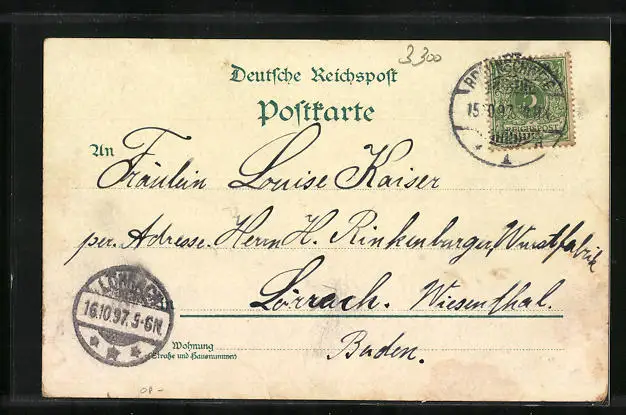 3300
Deutsche Reichspost
Postkarte
15.10.97
5
REICHSPOST
An Fräulein Louise Kaiser
per. Adresse. Herrn H. Rinkenburger, Wurstfabrik
Lörrach. Wiesenthal.
Baden.
LÖRRACH
16.10.97. 5-6N.
Wohnung
(Straße und Hausnummer)